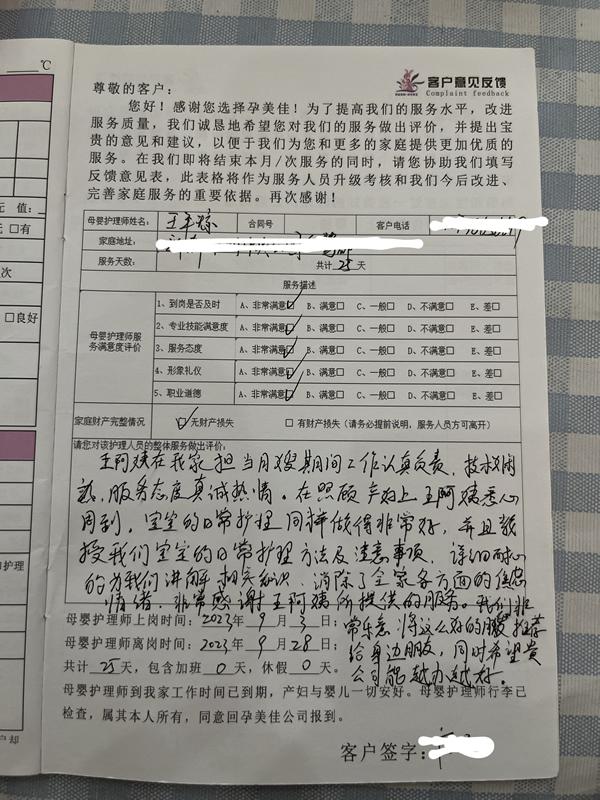 ℃
客户意见反馈
Complaint feedback
尊敬的客户：
您好！感谢您选择孕美佳！为了提高我们的服务水平，改进
服务质量，我们诚恳地希望您对我们的服务做出评价，并提出宝
贵的意见和建议，以便于我们为您和更多的家庭提供更加优质的
服务。在我们即将结束本月/次服务的同时，请您协助我们填写
反馈意见表，此表格将作为服务人员升级考核和我们今后改进、
完善家庭服务的重要依据。再次感谢！
母婴护理师姓名： 合同号 客户电话
家庭地址：
服务天数： 共计25天
服务描述
母婴护理师服
务满意度评价
1、到岗是否及时 A、非常满意☑ B、满意□ C、一般□ D、不满意□ E、差□
2、专业技能满意度 A、非常满意☑ B、满意□ C、一般□ D、不满意□ E、差□
3、服务态度 A、非常满意☑ B、满意□ C、一般□ D、不满意□ E、差□
4、形象礼仪 A、非常满意☑ B、满意□ C、一般□ D、不满意□ E、差□
5、职业道德 A、非常满意☑ B、满意□ C、一般□ D、不满意□ E、差□
家庭财产完整情况 ☑无财产损失 □有财产损失（请务必提前说明，服务人员方可离开）
请您对该护理人员的整体服务做出评价：
王阿姨在我家担当月嫂期间工作认真负责，技术娴
熟，服务态度真诚热情。在照顾产妇上王阿姨悉心
周到，宝宝的日常护理同样做得非常好，并且教
授我们宝宝的日常护理方法及注意事项，详细耐心
的为我们讲解相关知识，消除了全家各方面的焦虑
情绪。非常感谢王阿姨所提供的服务。我们非
常乐意将这么好的服务推荐
给身边朋友，同时希望贵
公司能越办越好。
母婴护理师上岗时间：2023年9月3日：
母婴护理师离岗时间：2023年9月28日：
共计25天，包含加班0天，休假0天。
母婴护理师到我家工作时间已到期，产妇与婴儿一切安好。母婴护理师行李已
检查，属其本人所有，同意回孕美佳公司报到。
客户签字：
元 值：
元 □有
次
□良好
护理
户却